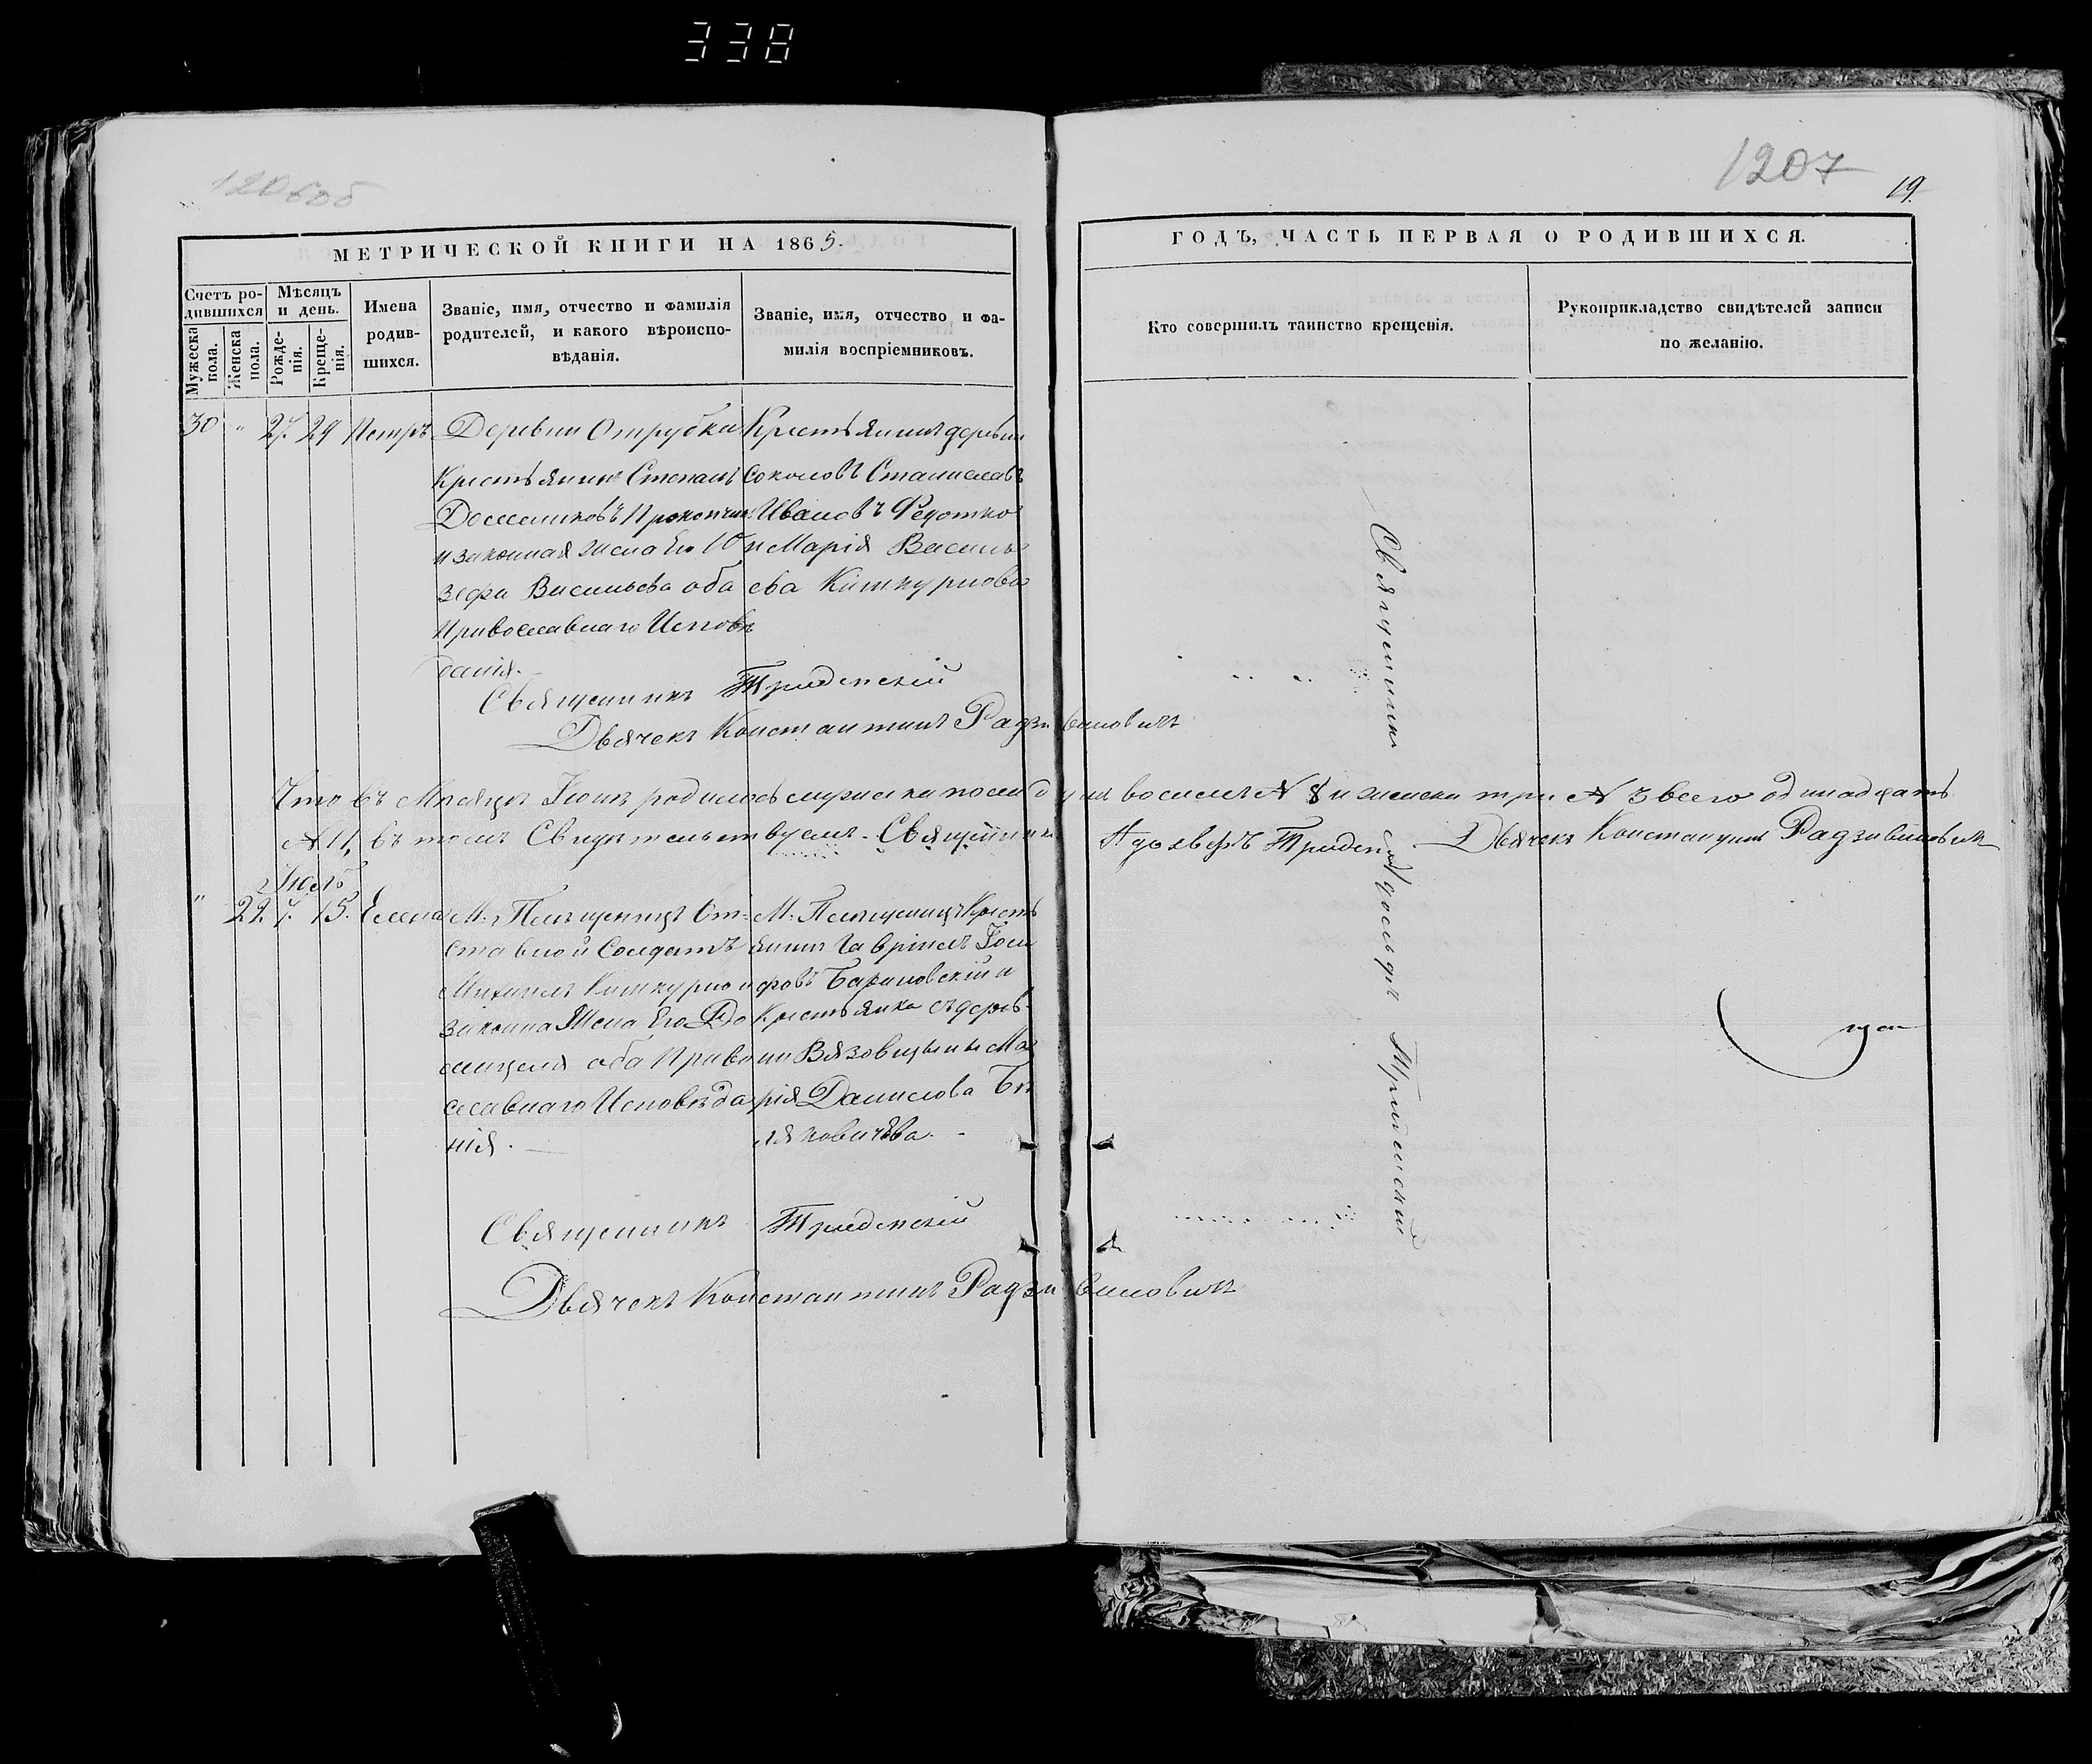 338
120боб
1207
19.
МЕТРИЧЕСКОЙ КНИГИ НА 1865.
ГОДЪ, ЧАСТЬ ПЕРВАЯ О РОДИВШИХСЯ.
Счетъ родившихся
Мужеска пола.
Женска пола.
Мѣсяцъ и день.
Рожденія.
Крещенія.
Имена родившихся.
Званіе, имя, отчество и фамилія
родителей, и какого вѣроиспо-
вѣданія.
Званіе, имя, отчество и фа-
милія воспріемниковъ.
Кто совершилъ таинство крещенія.
Рукоприкладство свидѣтелей записи
по желанію.
30 " 27. 29 Петръ
Деревни Отрубка
Крестьянинъ Степанъ
Доминиковъ
и законная жена Его Ю
зефа Васильева оба
Православнаго Исповѣ
данія.
Крестьянинъ деревни
Соколовъ Станиславъ
Ивановъ Федотко
и Марія Василь
ева Киткурнова
Священникъ Триденскій
Дьячекъ Константинъ Радзивиловичъ
Что въ Мѣсяцѣ Іюнѣ родилось мужеска пола душъ восемь № 8 и женска три № 3 всего одинадцать
№ 11, въ томъ Свидѣтельствуемъ. Священникъ Дьячекъ Константинъ Радзивиловичъ
Іюль
" 22 7. 15. Елена
М. Плещеницъ От-
ставной Солдатъ
Михаилъ Киткурно и
законна Жена Его До
мицеля оба Право
славнаго Исповѣда
нія.
М. Плещеницъ Кресть
янинъ Гавріилъ Іоси
фовъ Барановскій и
Крестьянка съ дерев-
ни Вязовщины Ма
рія Данилова Бѣ
ляковичева.
Священникъ Триденскій
Дьячекъ Константинъ Радзивиловичъ
Священникъ Тридненскій